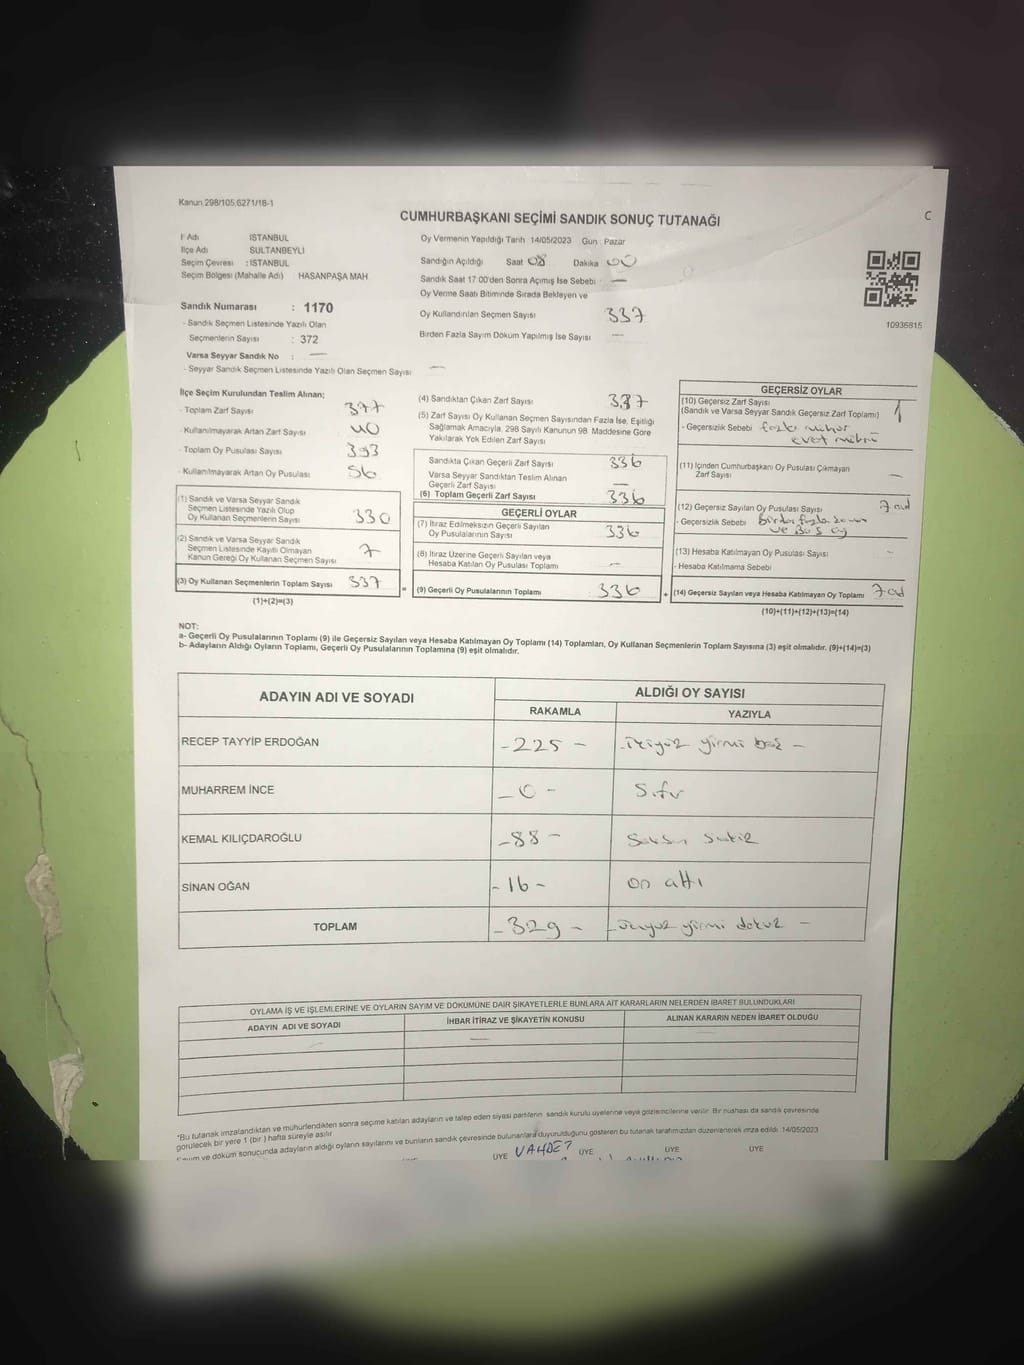 Kanun 298/105,6271/18-1
CUMHURBAŞKANI SEÇİMİ SANDIK SONUÇ TUTANAĞI
C
İl Adı İSTANBUL
İlçe Adı SULTANBEYLİ
Seçim Çevresi : İSTANBUL
Seçim Bölgesi (Mahalle Adı) HASANPAŞA MAH
Sandık Numarası : 1170
- Sandık Seçmen Listesinde Yazılı Olan
Seçmenlerin Sayısı : 372
Varsa Seyyar Sandık No : —
- Seyyar Sandık Seçmen Listesinde Yazılı Olan Seçmen Sayısı —
Oy Vermenin Yapıldığı Tarih 14/05/2023 Gün Pazar
Sandığın Açıldığı Saat 08 Dakika 00
Sandık Saat 17 00'den Sonra Açımış İse Sebebi —
Oy Verme Saati Bitiminde Sırada Bekleyen ve
Oy Kullandırılan Seçmen Sayısı 337
Birden Fazla Sayım Döküm Yapılmış İse Sayısı —
10935815
İlçe Seçim Kurulundan Teslim Alınan;
- Toplam Zarf Sayısı 377
- Kullanılmayarak Artan Zarf Sayısı 40
- Toplam Oy Pusulası Sayısı 393
- Kullanılmayarak Artan Oy Pusulası 56
(1) Sandık ve Varsa Seyyar Sandık
Seçmen Listesinde Yazılı Olup
Oy Kullanan Seçmenlerin Sayısı 330
(2) Sandık ve Varsa Seyyar Sandık
Seçmen Listesinde Kayıtlı Olmayan
Kanun Gereği Oy Kullanan Seçmen Sayısı 7
(3) Oy Kullanan Seçmenlerin Toplam Sayısı 337
(1)+(2)=(3)
(4) Sandıktan Çıkan Zarf Sayısı 337
(5) Zarf Sayısı Oy Kullanan Seçmen Sayısından Fazla İse, Eşitliği
Sağlamak Amacıyla, 298 Sayılı Kanunun 98. Maddesine Göre
Yakılarak Yok Edilen Zarf Sayısı
Sandıkta Çıkan Geçerli Zarf Sayısı 336
Varsa Seyyar Sandıktan Teslim Alınan
Geçerli Zarf Sayısı —
(6) Toplam Geçerli Zarf Sayısı 336
GEÇERLİ OYLAR
(7) İtiraz Edilmeksizin Geçerli Sayılan
Oy Pusulalarının Sayısı 336
(8) İtiraz Üzerine Geçerli Sayılan veya
Hesaba Katılan Oy Pusulası Toplamı —
= (9) Geçerli Oy Pusulalarının Toplamı 336
GEÇERSİZ OYLAR
(10) Geçersiz Zarf Sayısı 1
(Sandık ve Varsa Seyyar Sandık Geçersiz Zarf Toplamı)
- Geçersizlik Sebebi fazla mühür
evet mührü
(11) İçinden Cumhurbaşkanı Oy Pusulası Çıkmayan
Zarf Sayısı —
(12) Geçersiz Sayılan Oy Pusulası Sayısı 7 ad
- Geçersizlik Sebebi Birden fazla
ve Boş oy
(13) Hesaba Katılmayan Oy Pusulası Sayısı -
- Hesaba Katılmama Sebebi
+ (14) Geçersiz Sayılan veya Hesaba Katılmayan Oy Toplamı 7 ad
(10)+(11)+(12)+(13)=(14)
NOT:
a- Geçerli Oy Pusulalarının Toplamı (9) ile Geçersiz Sayılan veya Hesaba Katılmayan Oy Toplamı (14) Toplamları, Oy Kullanan Seçmenlerin Toplam Sayısına (3) eşit olmalıdır. (9)+(14)=(3)
b- Adayların Aldığı Oyların Toplamı, Geçerli Oy Pusulalarının Toplamına (9) eşit olmalıdır.
ADAYIN ADI VE SOYADI ALDIĞI OY SAYISI
RAKAMLA YAZIYLA
RECEP TAYYİP ERDOĞAN - 225 - ikiyüz yirmi beş -
MUHARREM İNCE - 0 - Sıfır
KEMAL KILIÇDAROĞLU - 88 - Seksen sekiz
SİNAN OĞAN - 16 - on altı
TOPLAM - 329 - üçyüz yirmi dokuz -
OYLAMA İŞ VE İŞLEMLERİNE VE OYLARIN SAYIM VE DÖKÜMÜNE DAİR ŞİKAYETLERLE BUNLARA AİT KARARLARIN NELERDEN İBARET BULUNDUKLARI
ADAYIN ADI VE SOYADI İHBAR İTİRAZ VE ŞİKAYETİN KONUSU ALINAN KARARIN NEDEN İBARET OLDUĞU
*Bu tutanak imzalandıktan ve mühürlendikten sonra seçime katılan adayların ve talep eden siyasi partilerin sandık kurulu üyelerine veya gözlemcilerine verilir. Bir nüshası da sandık çevresinde
görülecek bir yere 1 (bir) hafta süreyle asılır
Sayım ve döküm sonucunda adayların aldığı oyların sayılarını ve bunların sandık çevresinde bulunanlara duyurulduğunu gösteren bu tutanak tarafımızdan düzenlenerek imza edildi. 14/05/2023
ÜYE ÜYE ÜYE ÜYE